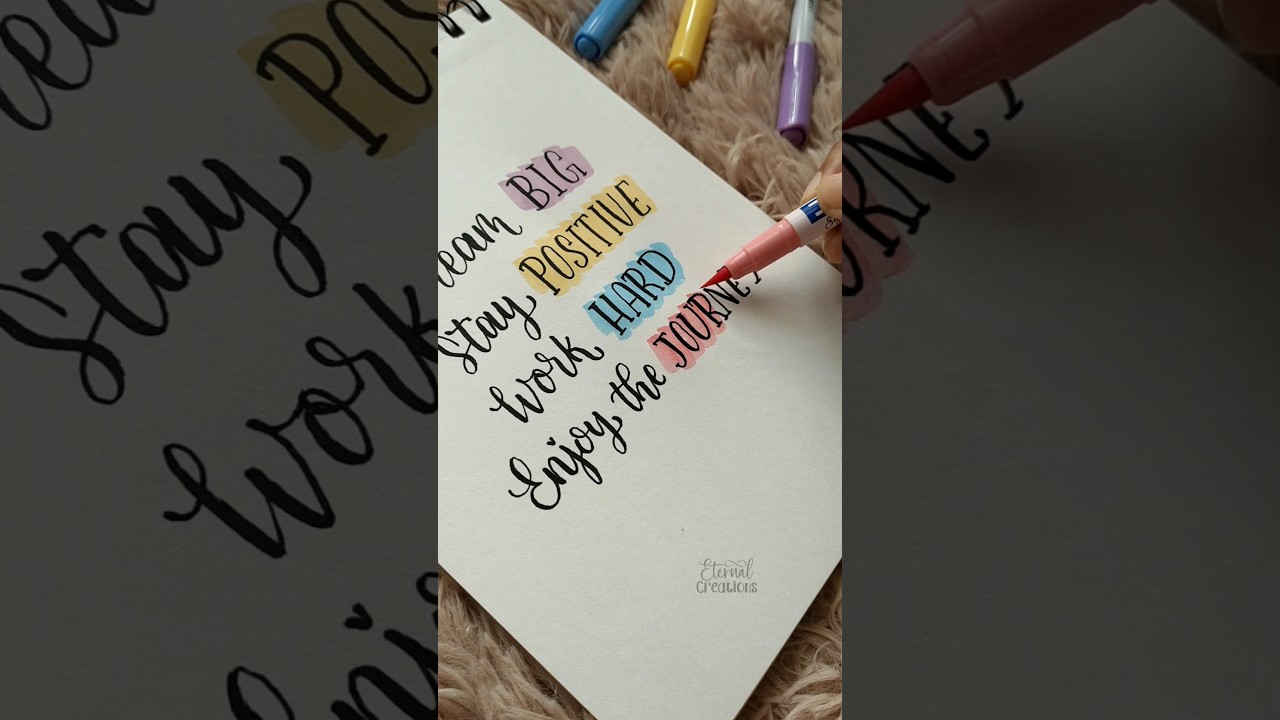 eam BIG
Stay POSITIVE
Work HARD
Enjoy the JOURNEY
Eternal
Creations